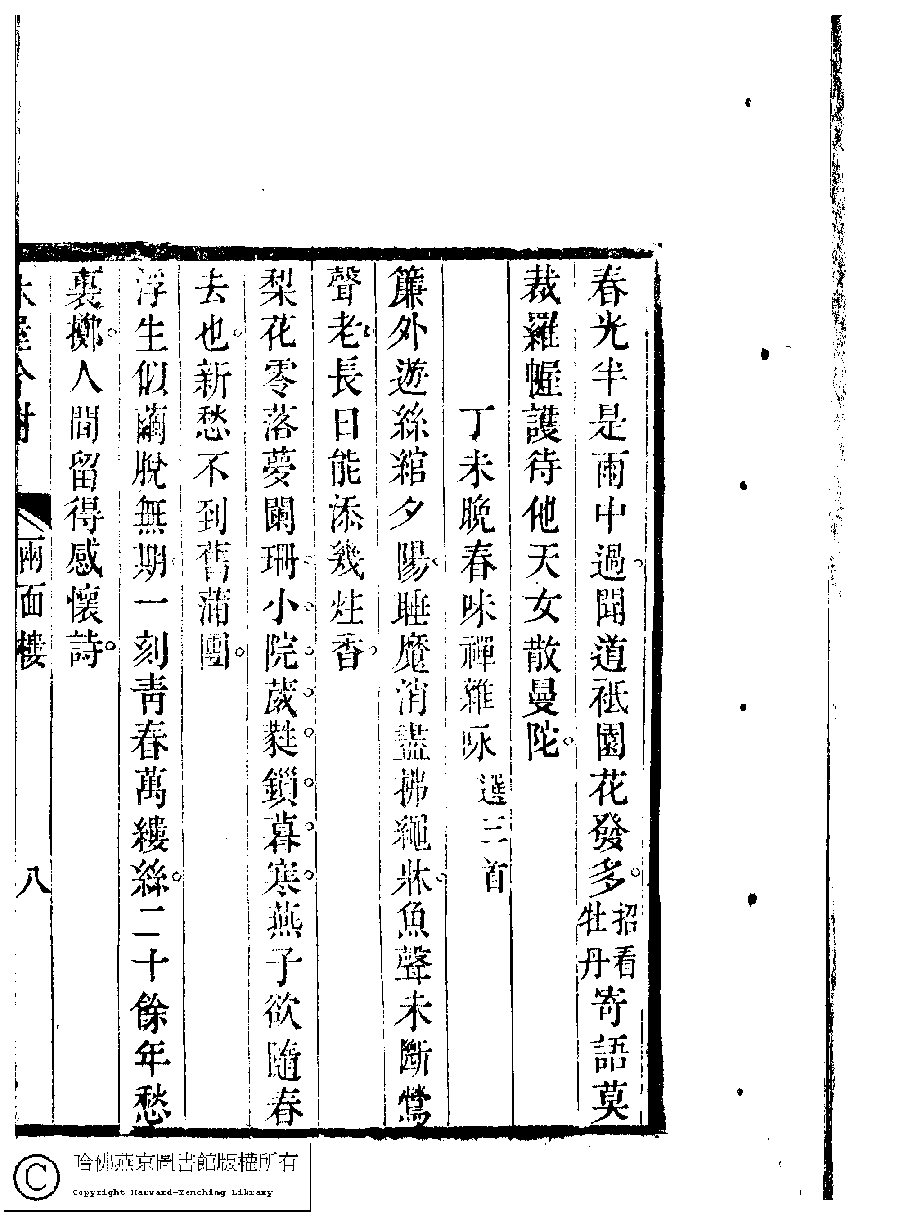 春光半是雨中過。聞道祇園花發多。招看牡丹寄語莫
裁羅幄護待他天女散曼陀。
丁未晚春味禪雜咏選三首
簾外遊絲綰夕陽。睡魔消盡拂繩牀。魚聲未斷鶯
聲老長日能添幾炷香。
梨花零落夢闌珊。小院葳蕤鎖暮寒。燕子欲隨春
去也。新愁不到舊蒲團。
浮生似繭脫無期一刻靑春萬縷絲。二十餘年愁
裏擲。人間留得感懷詩。
兩面樓
八
哈佛燕京圖書館版權所有
Copyright Harvard-Yenching Library